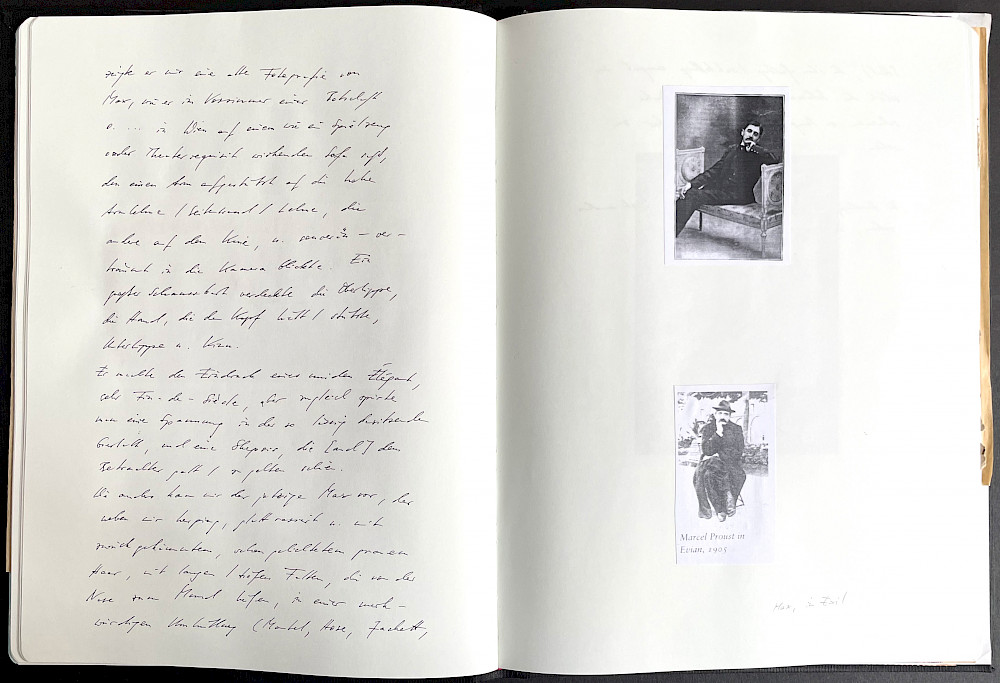 zeigte er mir eine alte Fotografie von
Max, wie er im Vorzimmer einer Botschaft
o. ... in Wien auf einem wie ein Spielzeug
oder Theaterrequisit wirkenden Sofa saß,
den einen Arm aufgestützt auf die hohe
Armlehne / Seitenwand / Lehne, die
andere auf dem Knie, u. souverän – ver-
träumt in die Kamera blickte. Ein
großer Schnauzbart verdeckte die Oberlippe,
die Hand, die den Kopf hielt / stützte,
Unterlippe u. Kinn.
Er machte den Eindruck eines müden Élégant,
sehr Fin-de-Siècle, aber zugleich spürte
man eine Spannung in der so lässig dasitzenden
Gestalt, und eine Skepsis, die [auch] dem
Betrachter galt / zu gelten schien.
Wie anders kam mir der jetzige Max vor, der
neben mir herging, glatt rasiert u. mit
zurückgekämmtem, schon gelichtetem grauen
Haar, mit langen / tiefen Falten, die von der
Nase zum Mund liefen, in einer merk-
würdigen Umhüllung (Mantel, Hose, Jackett,
Marcel Proust in
Evian, 1905
Max, in